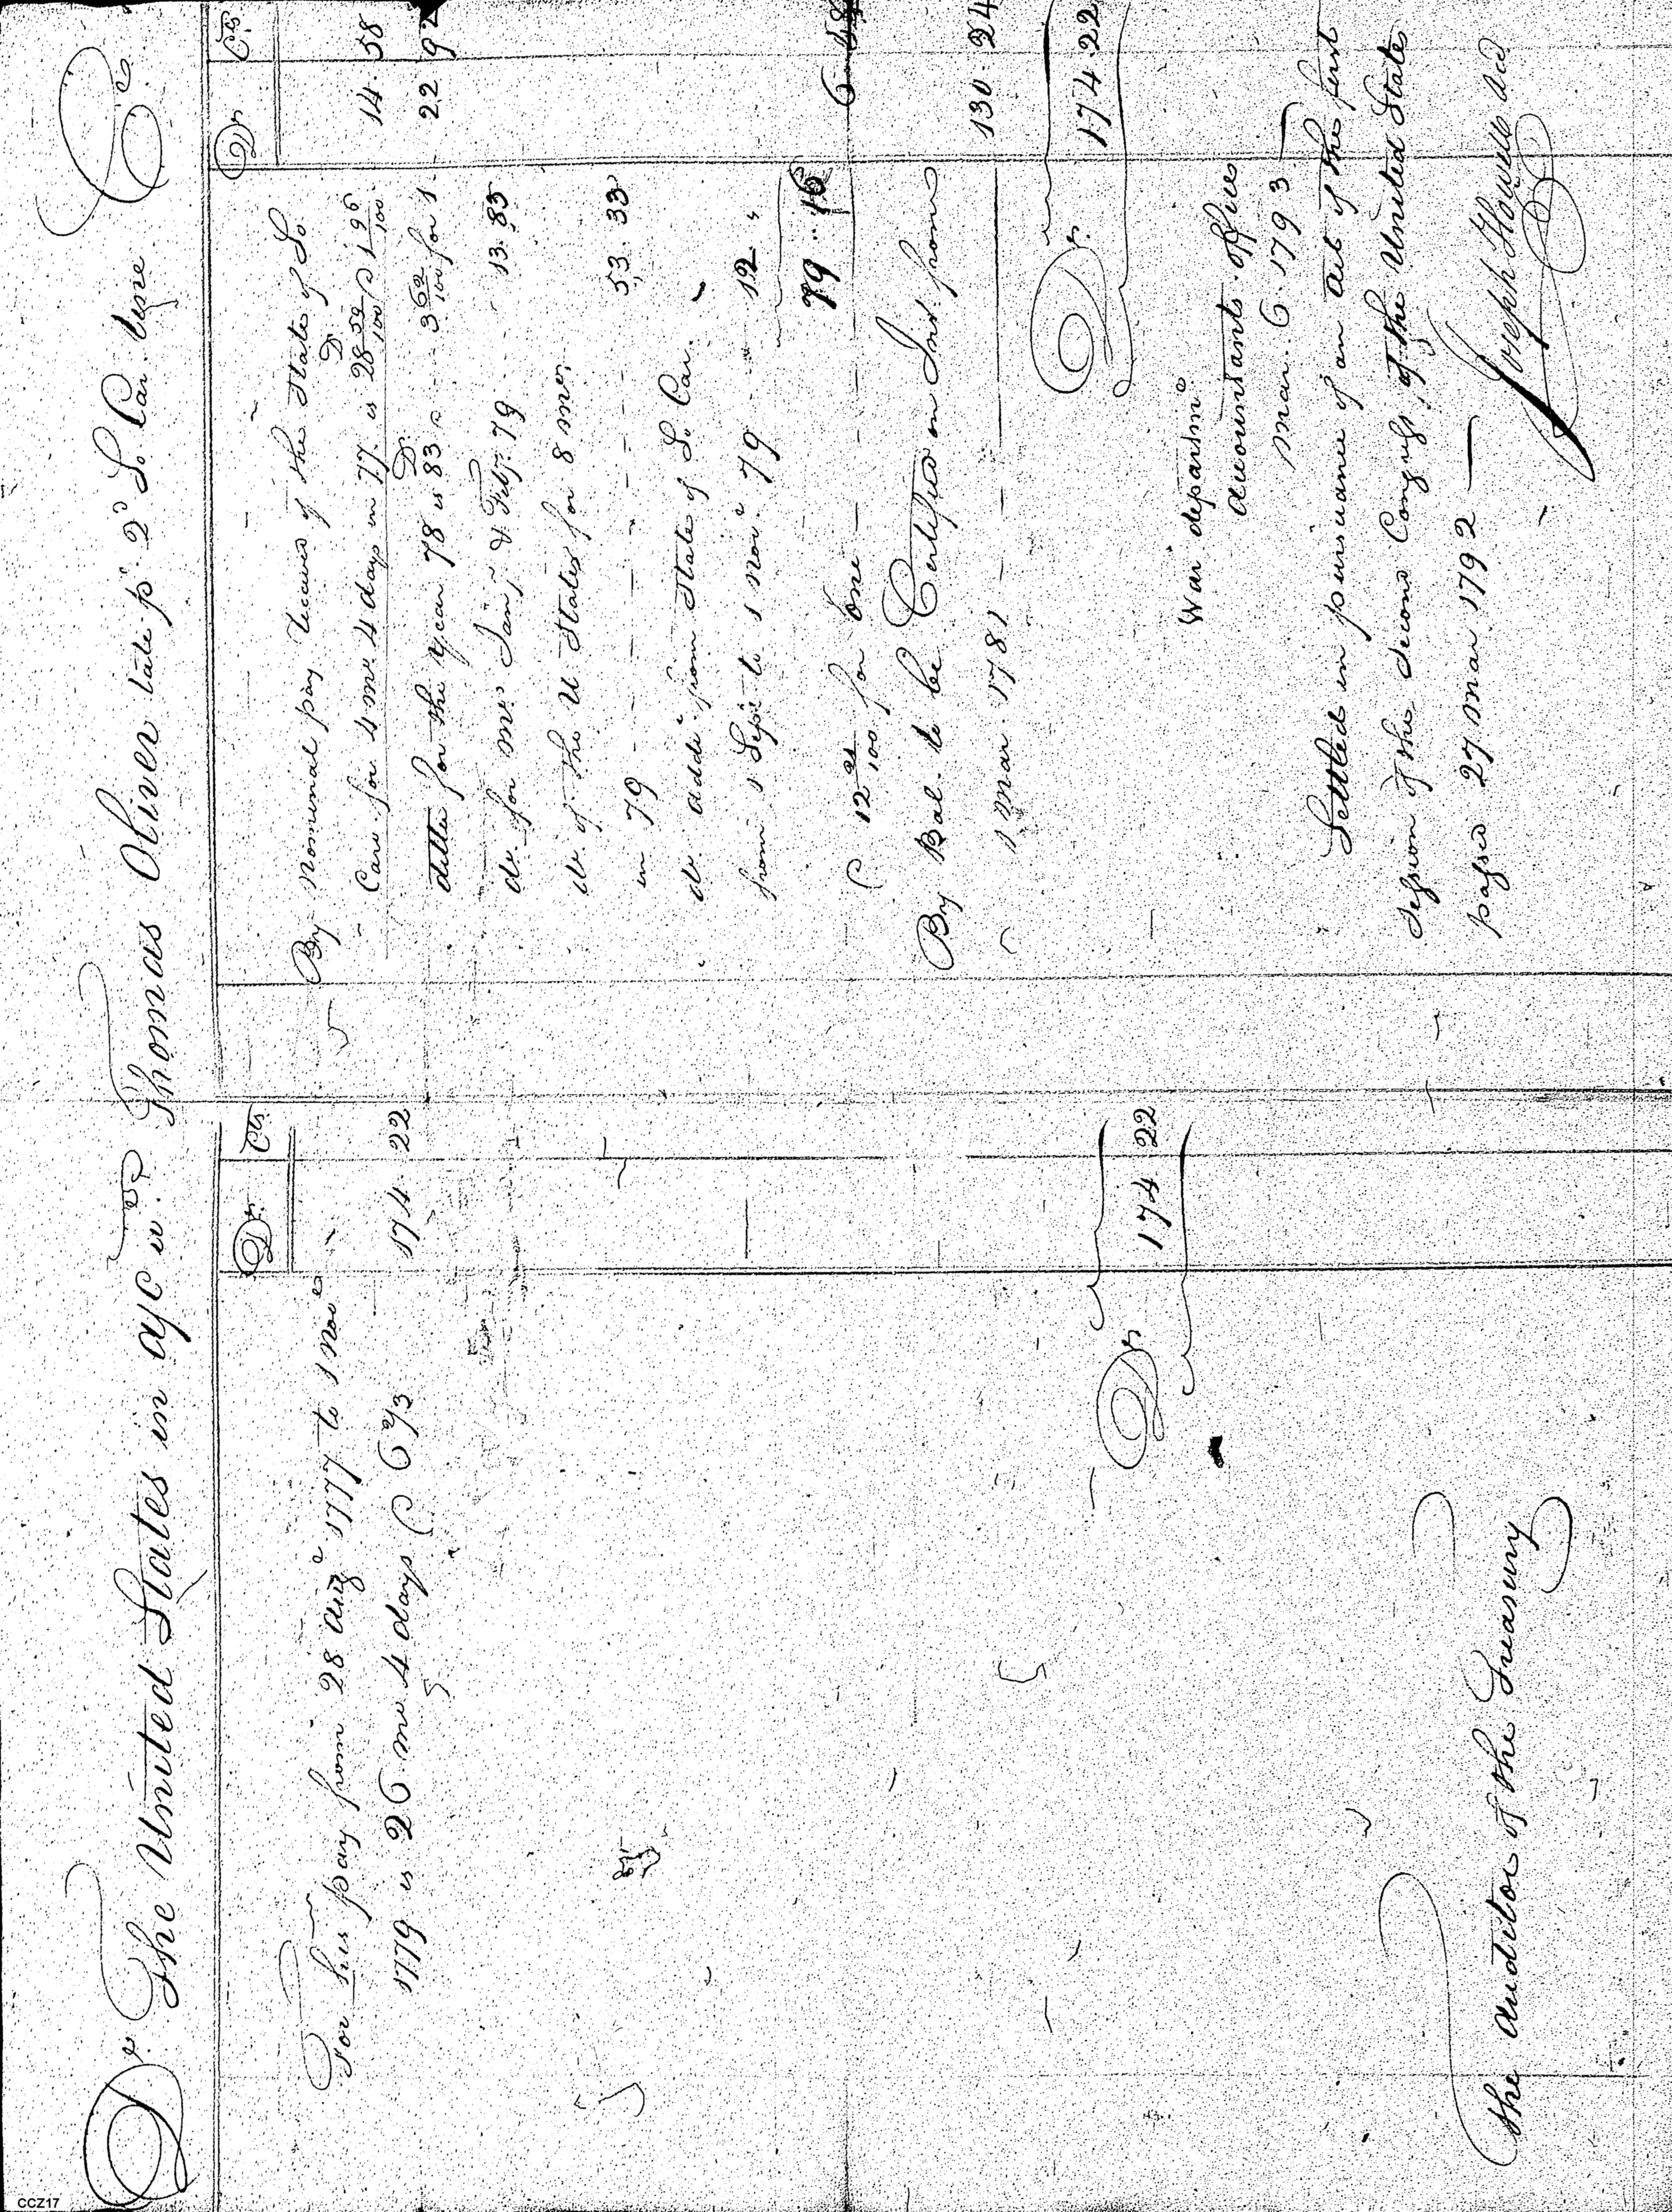 Dr. The United States in a/c wth Thomas Oliver late pt. 2d So. Car. Regt. Cr.
Dr. Cts.
For his pay from 28 Augt 1777 to 1 Novr
1779 is 26 mos 4 days @ 6 2/3 174 22
Dr. 174 22
the Auditor of the Treasury
Dr. Cts.
By Nominal pay received of the State of So
Caro. for 4 mos. 4 days in 77. is 28 52/100 Dr @ 1 96/100 14. 58
ditto for the year 78 is 83 Dr @ 3 62/100 for 1 22 92
do. for mos. Jany & Feby. 79 13.83
do. of the U States for 8 mos.
in 79 53.33
do. addl. from State of So Car.
from 1 Sept. to 1 Novr 79 12 "
79.16
@ 12 21/100 for one 6 48
By Bal. to be Certified on Int. from
1 Mar. 1781 130. 24
Dr. 174. 22
War departmt
Accountants. Office
Mar. 6. 1793
Settled in pursuance of an Act of the first
Session of the Second Congress, of the United States
passed 27 Mar 1792
Joseph Howell Acct
CCZ17